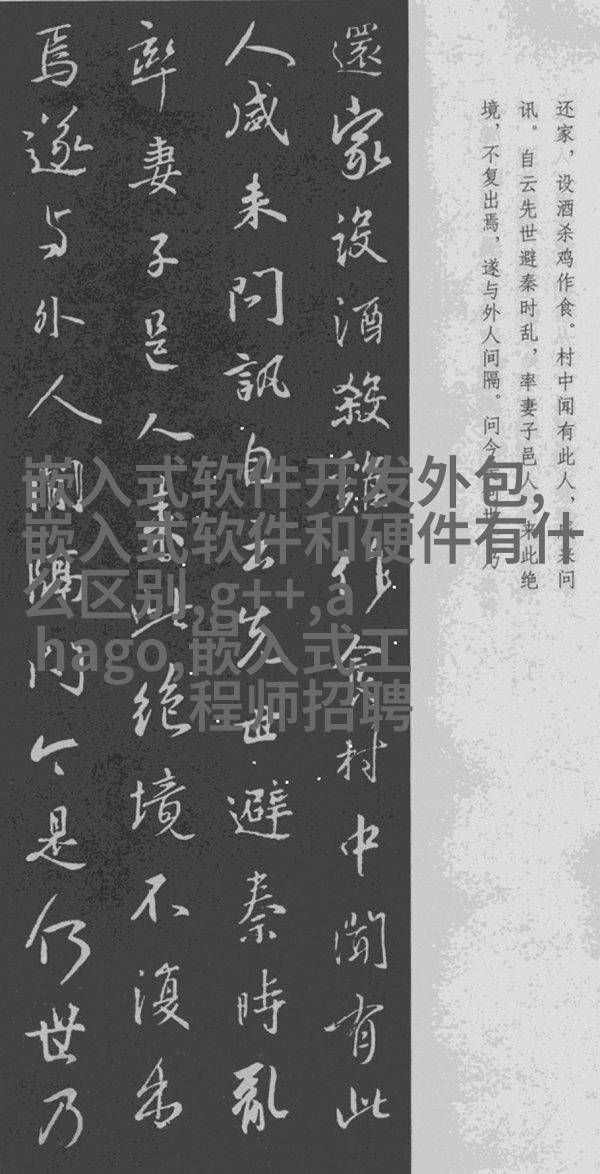 还家，设酒杀鸡作食。村中闻有此人，咸来问
讯。自云先世避秦时乱，率妻子邑人来此绝
境，不复出焉，遂与外人间隔。问今是何世，乃
還家設酒殺雞作食村中聞有此
人咸来問訊自云先世避秦時亂
率妻子邑人来此絶境不復出
焉遂与外人間隔问今是何世乃
嵌入式软件开发外包,
嵌入式软件和硬件有什
么区别,g++,a
hago,嵌入式工
程师招聘